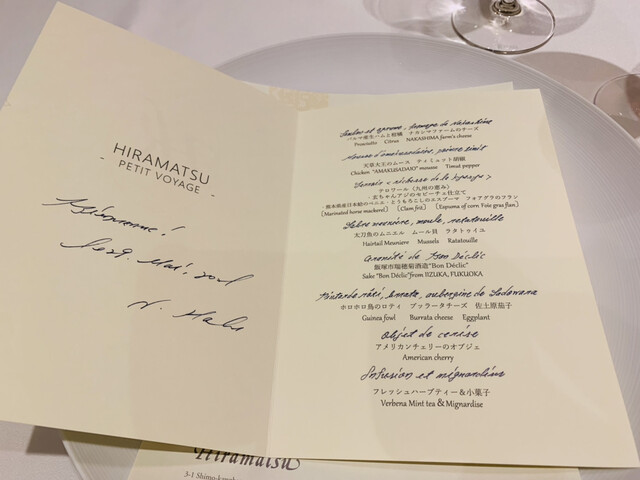 HIRAMATSU
- PETIT VOYAGE -
Bienvenue!
le 29. Mai. 2021
パルマ産生ハムと柑橘 ナカシマファームのチーズ
Prosciutto Citrus NAKASHIMA farm's cheese
天草大王のムース ティミュット胡椒
Chicken "AMAKUSADAIO" mousse Timut pepper
Terroir < richesse de la kyushu >
テロワール〈九州の恵み〉
(Marinated horse mackerel) (Clam frit) (Espuma of corn Foie gras flan)
Sabre meunière, moule, ratatouille
太刀魚のムニエル ムール貝 ラタトゥイユ
Hairtail Meuniere Mussels Ratatouille
飯塚市瑞穂菊酒造"Bon Déclic"
Sake "Bon Déclic"from IIZUKA, FUKUOKA
Pintarde rôti, burata, aubergine de Sadowara
ホロホロ鳥のロティ ブッラータチーズ 佐土原茄子
Guinea fowl Burrata cheese Eggplant
Objet de cerise
アメリカンチェリーのオブジェ
American cherry
Infusion et mignardise
フレッシュハーブティー＆小菓子
Verbena Mint tea & Mignardise
Hiramatsu